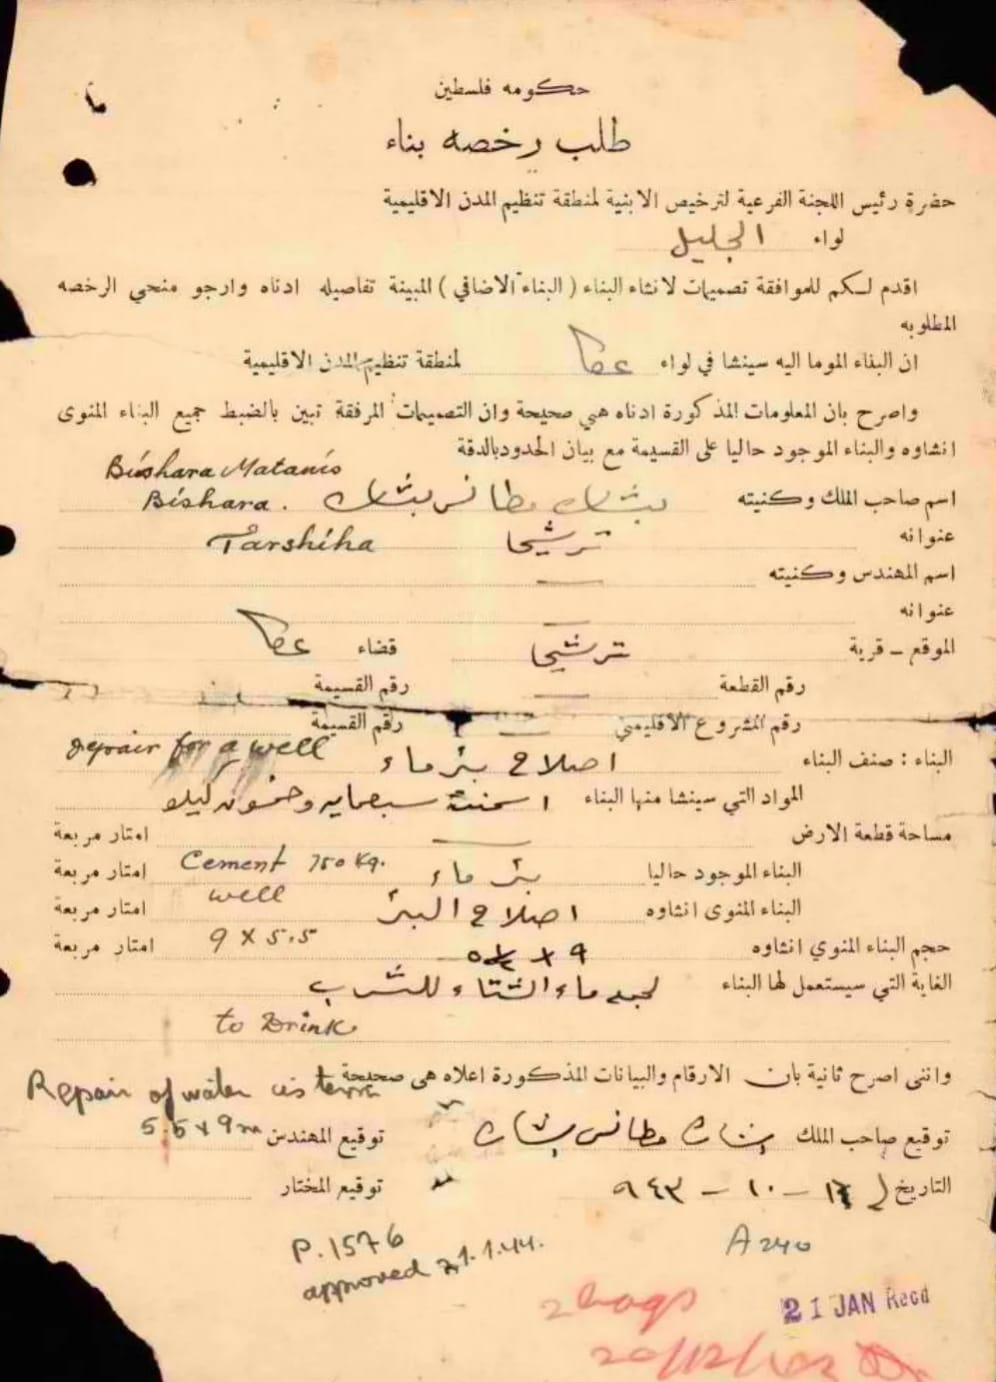 حكومه فلسطين
طلب رخصه بناء
حضرة رئيس اللجنة الفرعية لترخيص الابنية لمنطقة تنظيم المدن الاقليمية
لواء الجليل
اقدم لكم للموافقة تصميمات لانشاء البناء ( البناء الاضافي ) المبينة تفاصيله ادناه وارجو منحي الرخصه
المطلوبه
ان البناء الموما اليه سينشا في لواء عكا لمنطقة تنظيم المدن الاقليمية
واصرح بان المعلومات المذكورة ادناه هي صحيحة وان التصميمات المرفقة تبين بالضبط جميع البناء المنوى
انشاوه والبناء الموجود حاليا على القسيمة مع بيان الحدود بالدقة
Bishara Matanis
اسم صاحب الملك وكنيته بشاره مطانس بشاره Bishara.
عنوانه ترشيحا Tarshiha
اسم المهندس وكنيته —
عنوانه —
الموقع – قرية ترشيحا قضاء عكا
رقم القطعة — رقم القسيمة
رقم المشروع الاقليمي — رقم القسيمة
البناء : صنف البناء اصلاح بئر ماء repair for a well
المواد التي سينشا منها البناء اسمنت سبعمايه وخمسون كيلو
مساحة قطعة الارض — امتار مربعة
البناء الموجود حاليا بئر ماء Cement 750 Kg. امتار مربعة
البناء المنوى انشاوه اصلاح البئر well امتار مربعة
حجم البناء المنوي انشاوه ٩ × ٥½ 9 x 5.5 امتار مربعة
الغاية التي سيستعمل لها البناء لجمع ماء الشتاء للشرب
to Drink
وانني اصرح ثانية بان الارقام والبيانات المذكورة اعلاه هي صحيحة
Repair of water cistern
توقيع صاحب الملك بشاره مطانس بشاره توقيع المهندس 5.5 x 9 m
التاريخ ١٠ – ٩٤٣ توقيع المختار
P.1576 A 240
approved 21.1.44.
2 bags 21 JAN Recd